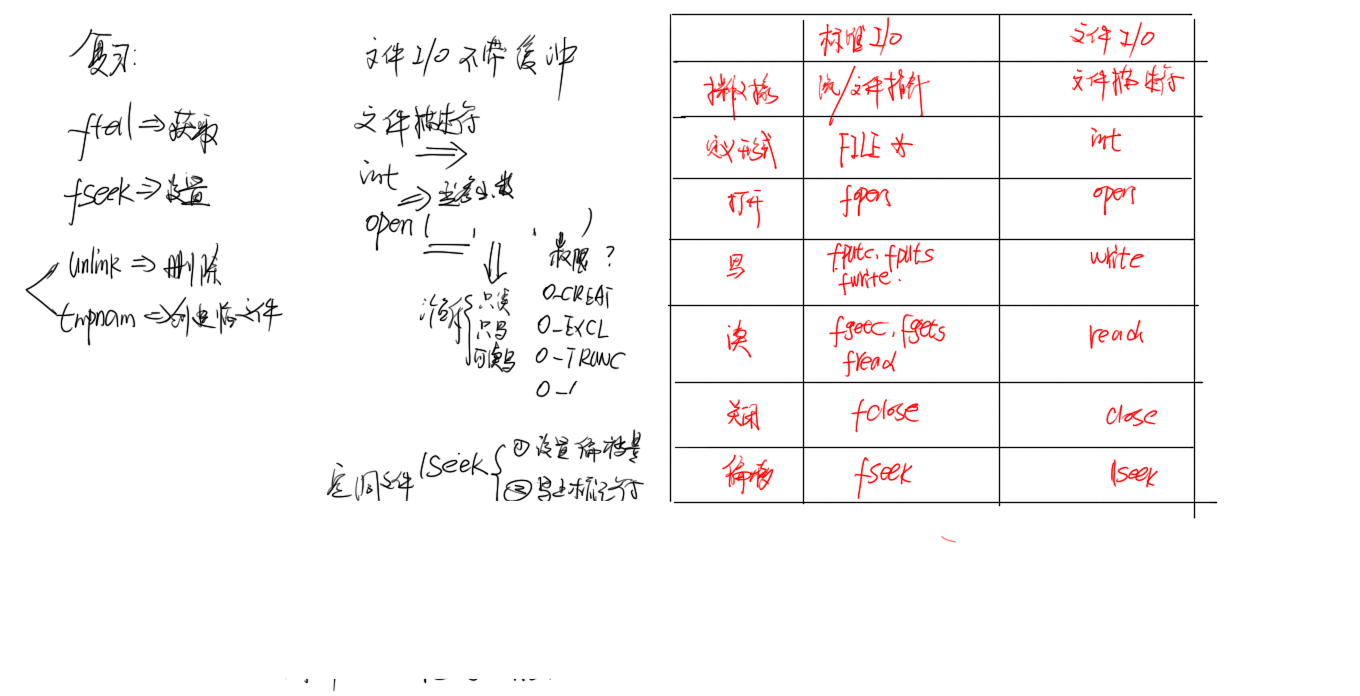 复习:
ftell⇒获取
fseek⇒设置
unlink⇒删除
tmpnam⇒创建临文件
文件I/O不带缓冲
文件描述符
int
open( , , )
权限?
只读
只写
可读写
O_CREAT
O_EXCL
O_TRUNC
O_
空洞文件 lseek
①设置偏移量
②写上标记符
标准I/O 文件I/O
操作对象 流/文件指针 文件描述符
定义形式 FILE * int
打开 fopen open
写 fputc, fputs write
fwrite.
读 fgetc, fgets read
fread
关闭 fclose close
偏移 fseek lseek